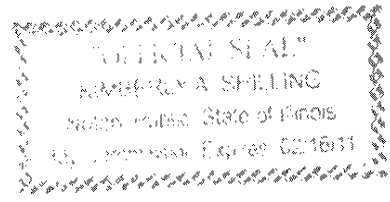 "OFFICIAL SEAL"
KIMBERLY A. SPILLING
Notary Public, State of Illinois
My Commission Expires 02/16/11